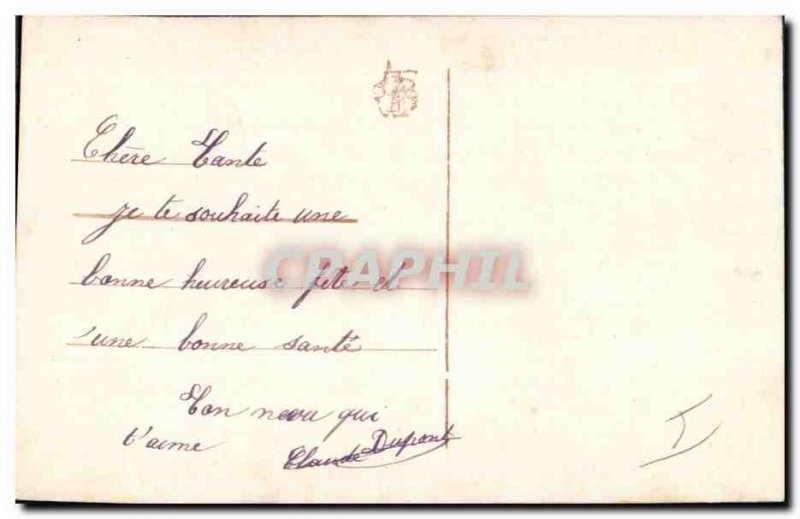 Chère Tante
je te souhaite une
bonne heureuse fête et
une bonne santé
Ton neveu qui
t'aime Claude Dupont
CRAPHIL